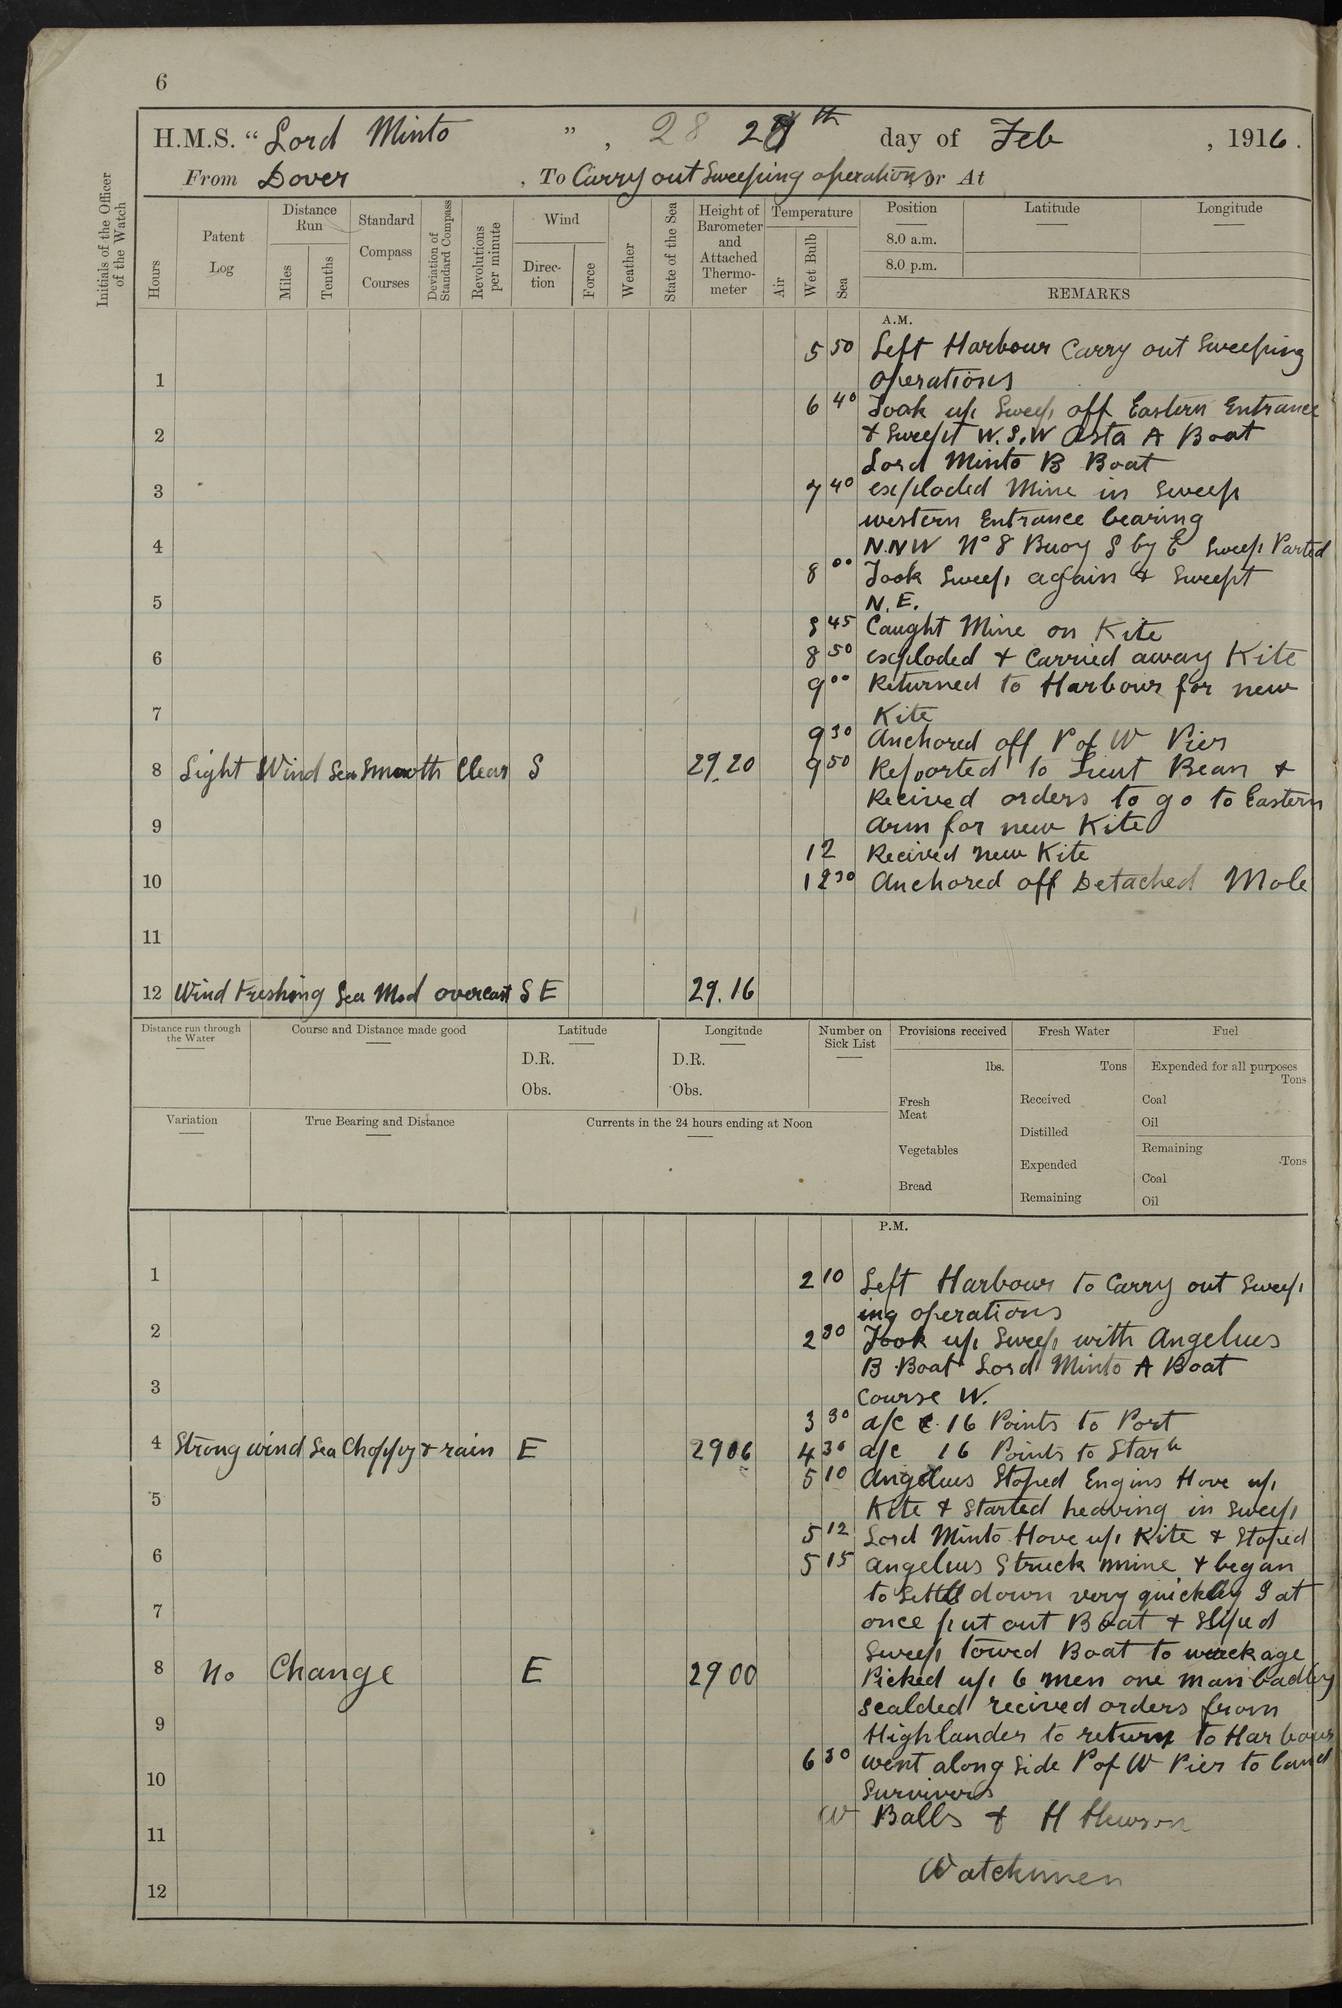 6
H.M.S. “ Lord Minto ” , 28 28th day of Feb , 1916.
From Dover , To Carry out Sweeping operations, or At
Initials of the Officer of the Watch
Hours
Patent Log
Distance Run
Miles
Tenths
Standard Compass Courses
Deviation of Standard Compass
Revolutions per minute
Wind
Direc-tion
Force
Weather
State of the Sea
Height of Barometer and Attached Thermo-meter
Temperature
Air
Wet Bulb
Sea
Position
8.0 a.m.
8.0 p.m.
Latitude
Longitude
REMARKS
A.M.
5 50 Left Harbour Carry out Sweeping
1 operations
6 40 Took up Sweep off Eastern Entrance
2 & Sweept W.S.W Asta A Boat
Lord Minto B Boat
3 7 40 exploded Mine in Sweep
western Entrance bearing
4 N.NW No 8 Buoy S by E Sweep Parted
8 00 Took Sweep again & Sweept
5 N.E.
8 45 Caught Mine on Kite
6 8 50 exploded & Carried away Kite
9 00 Returned to Harbour for new
7 Kite
9 30 Anchored off P of W Pier
8 Light Wind Sea Smooth Clear S 29.20 9 50 Repoorted to Lieut Bean &
Recived orders to go to Eastern
9 Arm for new Kite
12 Recived new Kite
10 12 30 Anchored off Detached Mole
11
12 Wind Freshing Sea Mod overcast S E 29.16
Distance run through the Water
Course and Distance made good
Latitude
D.R.
Obs.
Longitude
D.R.
Obs.
Number on Sick List
Provisions received
lbs.
Fresh Meat
Vegetables
Bread
Fresh Water
Tons
Received
Distilled
Expended
Remaining
Fuel
Expended for all purposes
Tons
Coal
Oil
Remaining
Tons
Coal
Oil
Variation
True Bearing and Distance
Currents in the 24 hours ending at Noon
P.M.
1 2 10 Left Harbour to Carry out Sweep
ing operations
2 2 30 Took up Sweep with Angelus
B Boat Lord Minto A Boat
3 Course W.
3 30 a/c 16 Points to Port
4 Strong wind Sea Choppy & rain E 2906 4 30 a/c 16 Points to Starb
5 10 Angelus Stoped Engins Hove up
5 Kite & Started heaving in Sweep
5 12 Lord Minto Hove up Kite & Stoped
6 5 15 Angelus Struck mine & began
to Settle down very quickly I at
7 once put out Boat & Sliped
Sweep towed Boat to wreckage
8 No Change E 2900 Picked up 6 men one man badley
scalded recived orders from
9 Highlander to return to Harbour
6 30 went along side P of W Pier to land
10 Survivors
W Balls & H Hewson
11
Watchmen
12